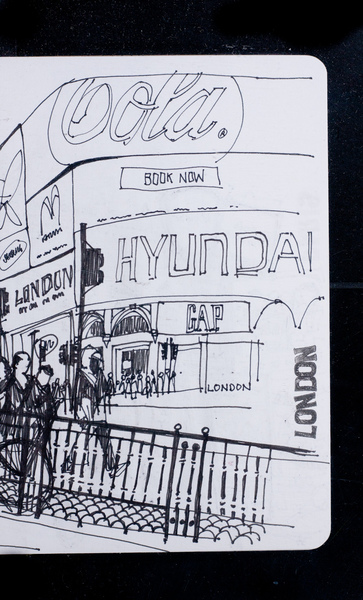 Cola.
BOOK NOW
HYUNDAI
LONDON
GAP
LONDON
LONDON